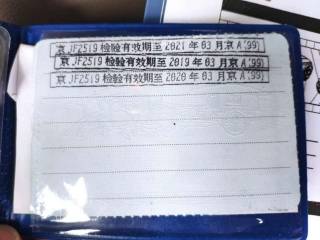 京JF2519 检验有效期至 2021 年 03 月京 A(99)
京JF2519 检验有效期至 2019 年 03 月京 A(99)
京JF2519 检验有效期至 2020 年 03 月京 A(99)